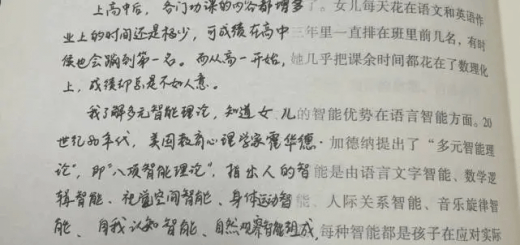 上高中后，各门功课的内容都增多了。女儿每天花在语文和英语作
业上的时间还是极少，可成绩在高中三年里一直排在班里前几名，有时
候也会蹦到第一名。而从高一开始，她几乎把课余时间都花在了数理化
上，成绩却总是不如人意。
我了解多元智能理论，知道女儿的智能优势在语言智能方面。20
世纪80年代，美国教育心理学家霍华德·加德纳提出了“多元智能理
论”，即“八项智能理论”，指出人的智能是由语言文字智能、数学逻
辑智能、视觉空间智能、身体运动智能、人际关系智能、音乐旋律智
能、自我认知智能、自然观察智能组成，每种智能都是孩子在应对实际